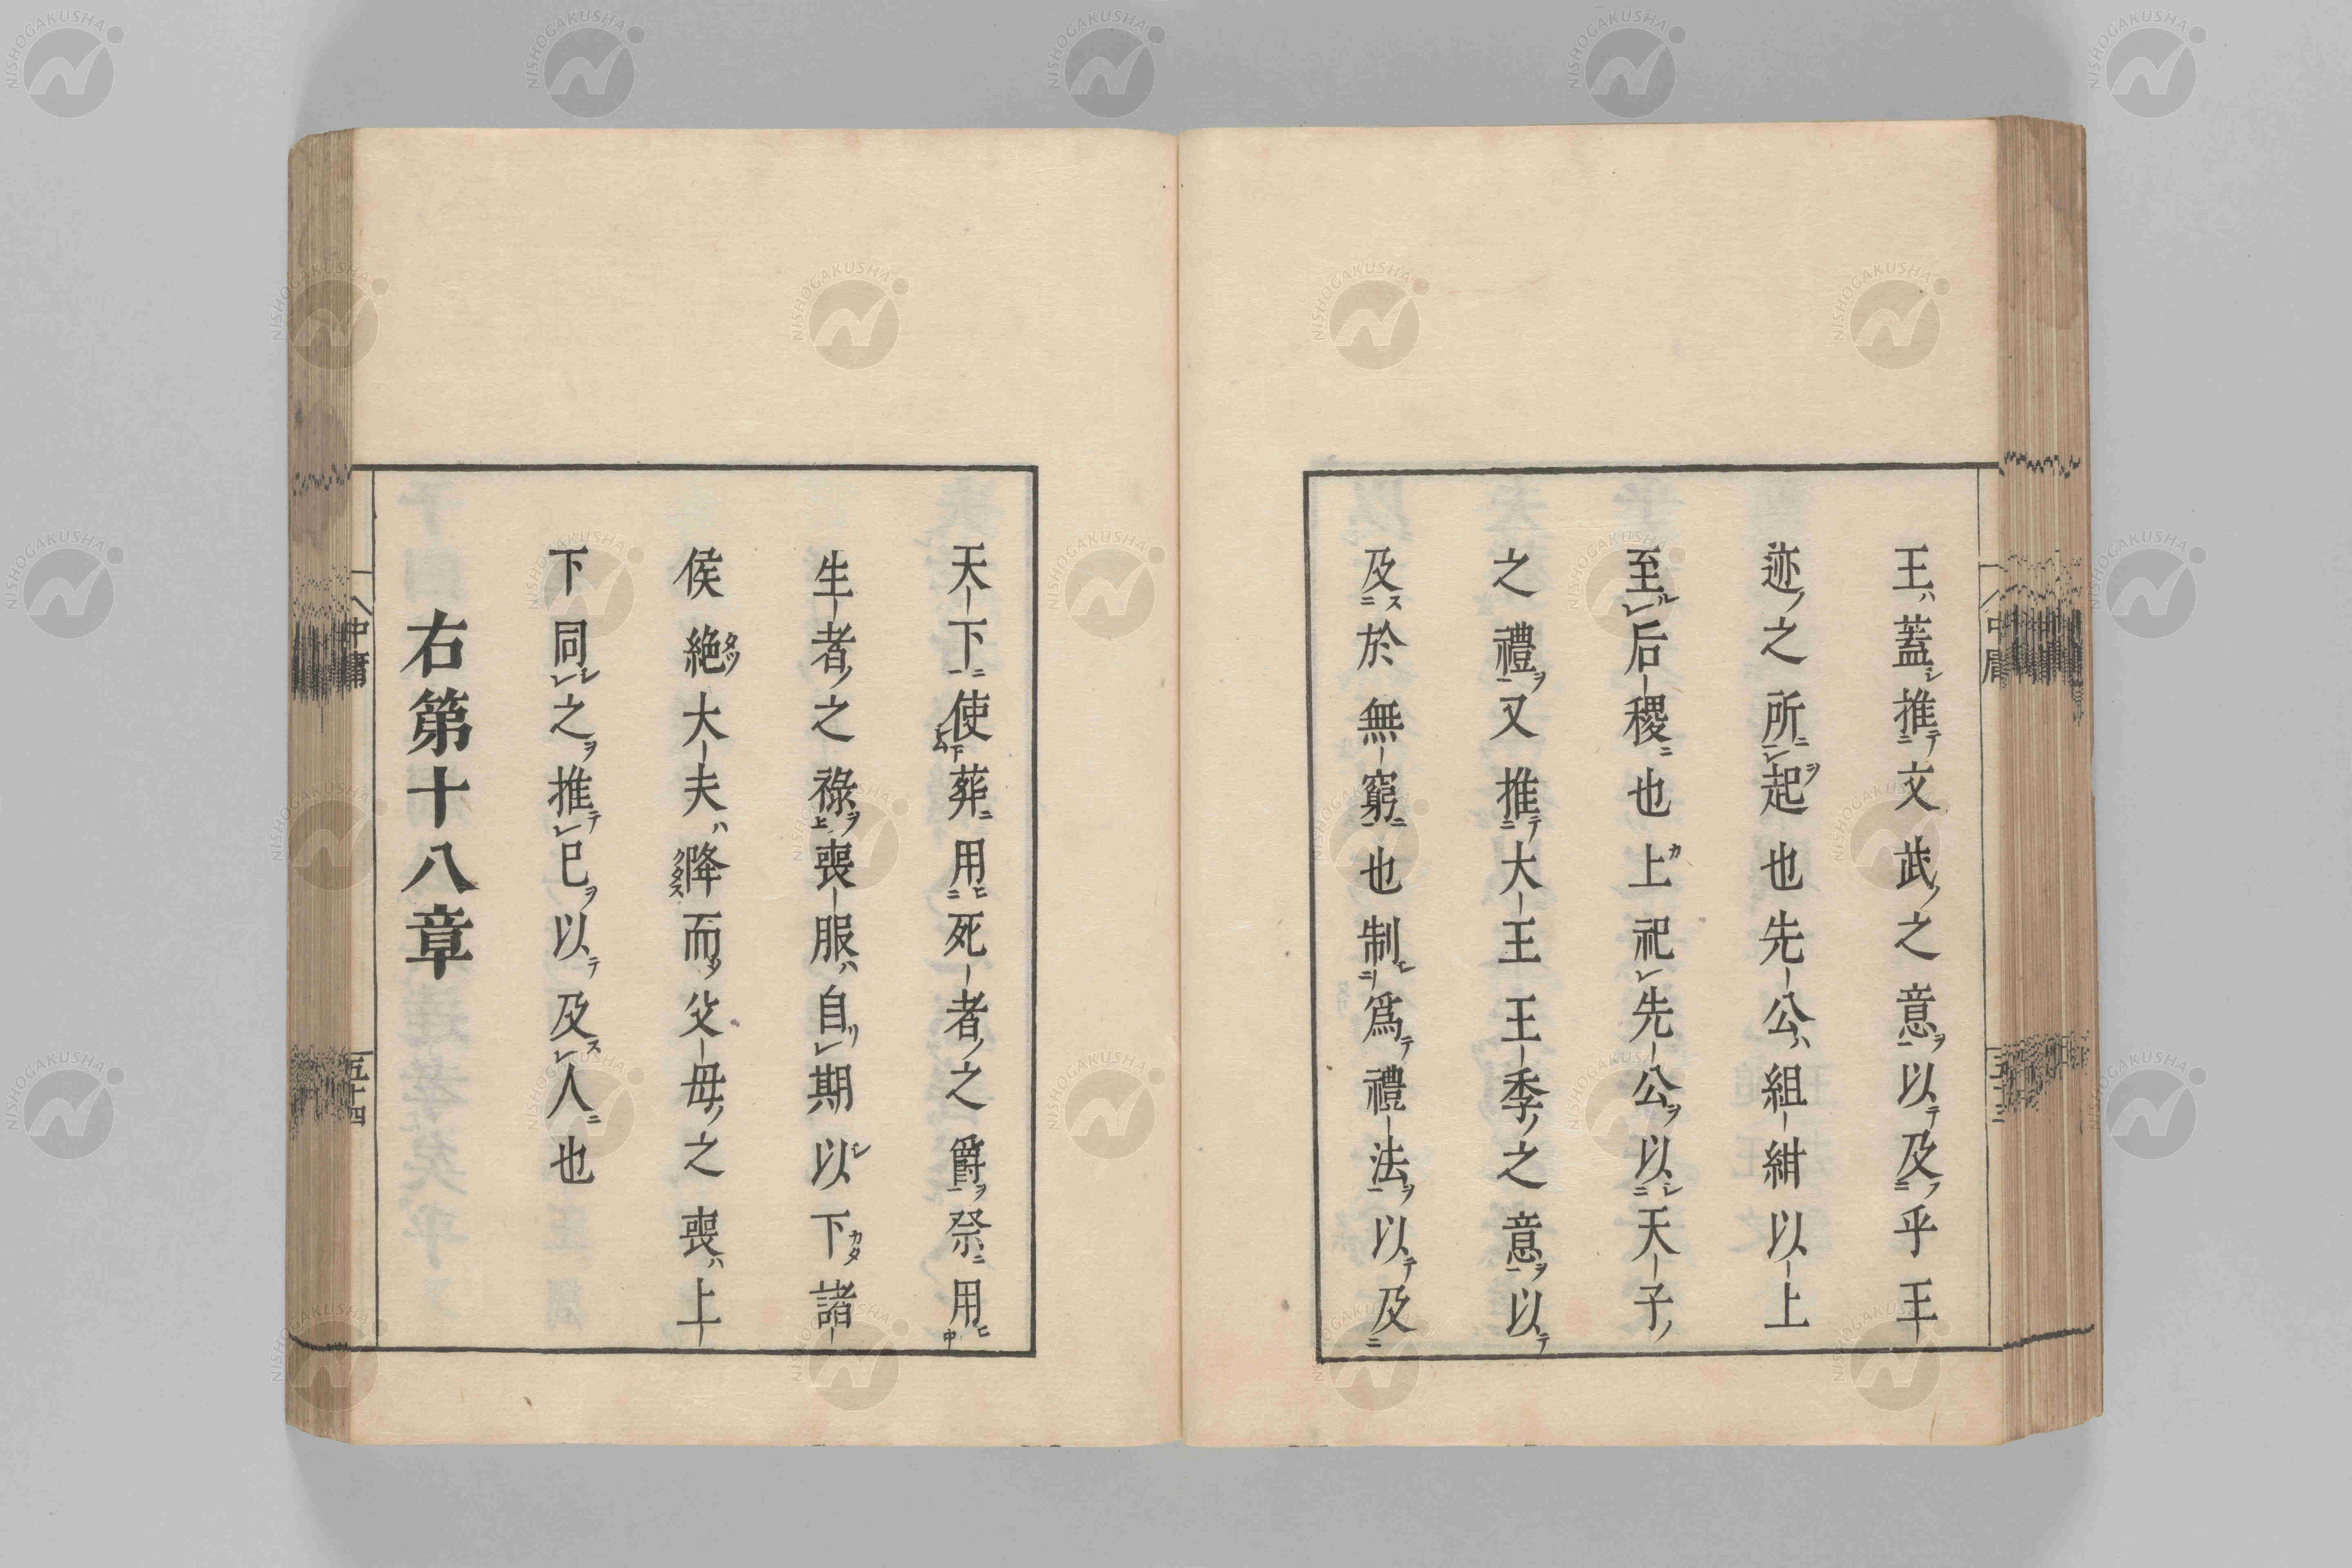 王蓋推文武之意以及乎王
迹之所起也先公組紺以上
至后稷也上祀先公以天子
之禮又推大王王季之意以
及於無窮也制爲禮法以及
天下使葬用死者之爵祭用
生者之祿喪服自期以下諸
侯絶大夫降而父母之喪上
下同之推已以及人也
右第十八章
中庸
五十四
NISHOGAKUSHA